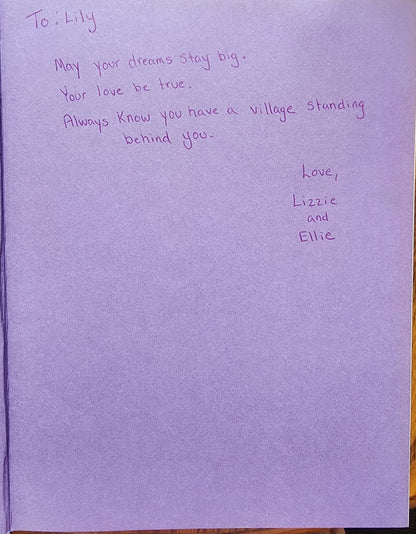 To: Lily
May your dreams stay big.
Your love be true.
Always Know you have a village standing
behind you.
Love,
Lizzie
and
Ellie